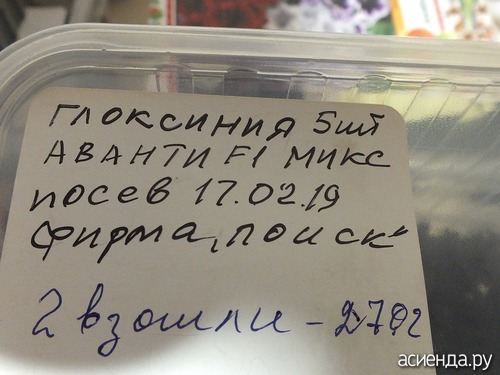 ГЛОКСИНИЯ 5шт
АВАНТИ F1 МИКС
посев 17.02.19
фирма „ПОИСК"
2 взошли - 27.02
асиенда.ру